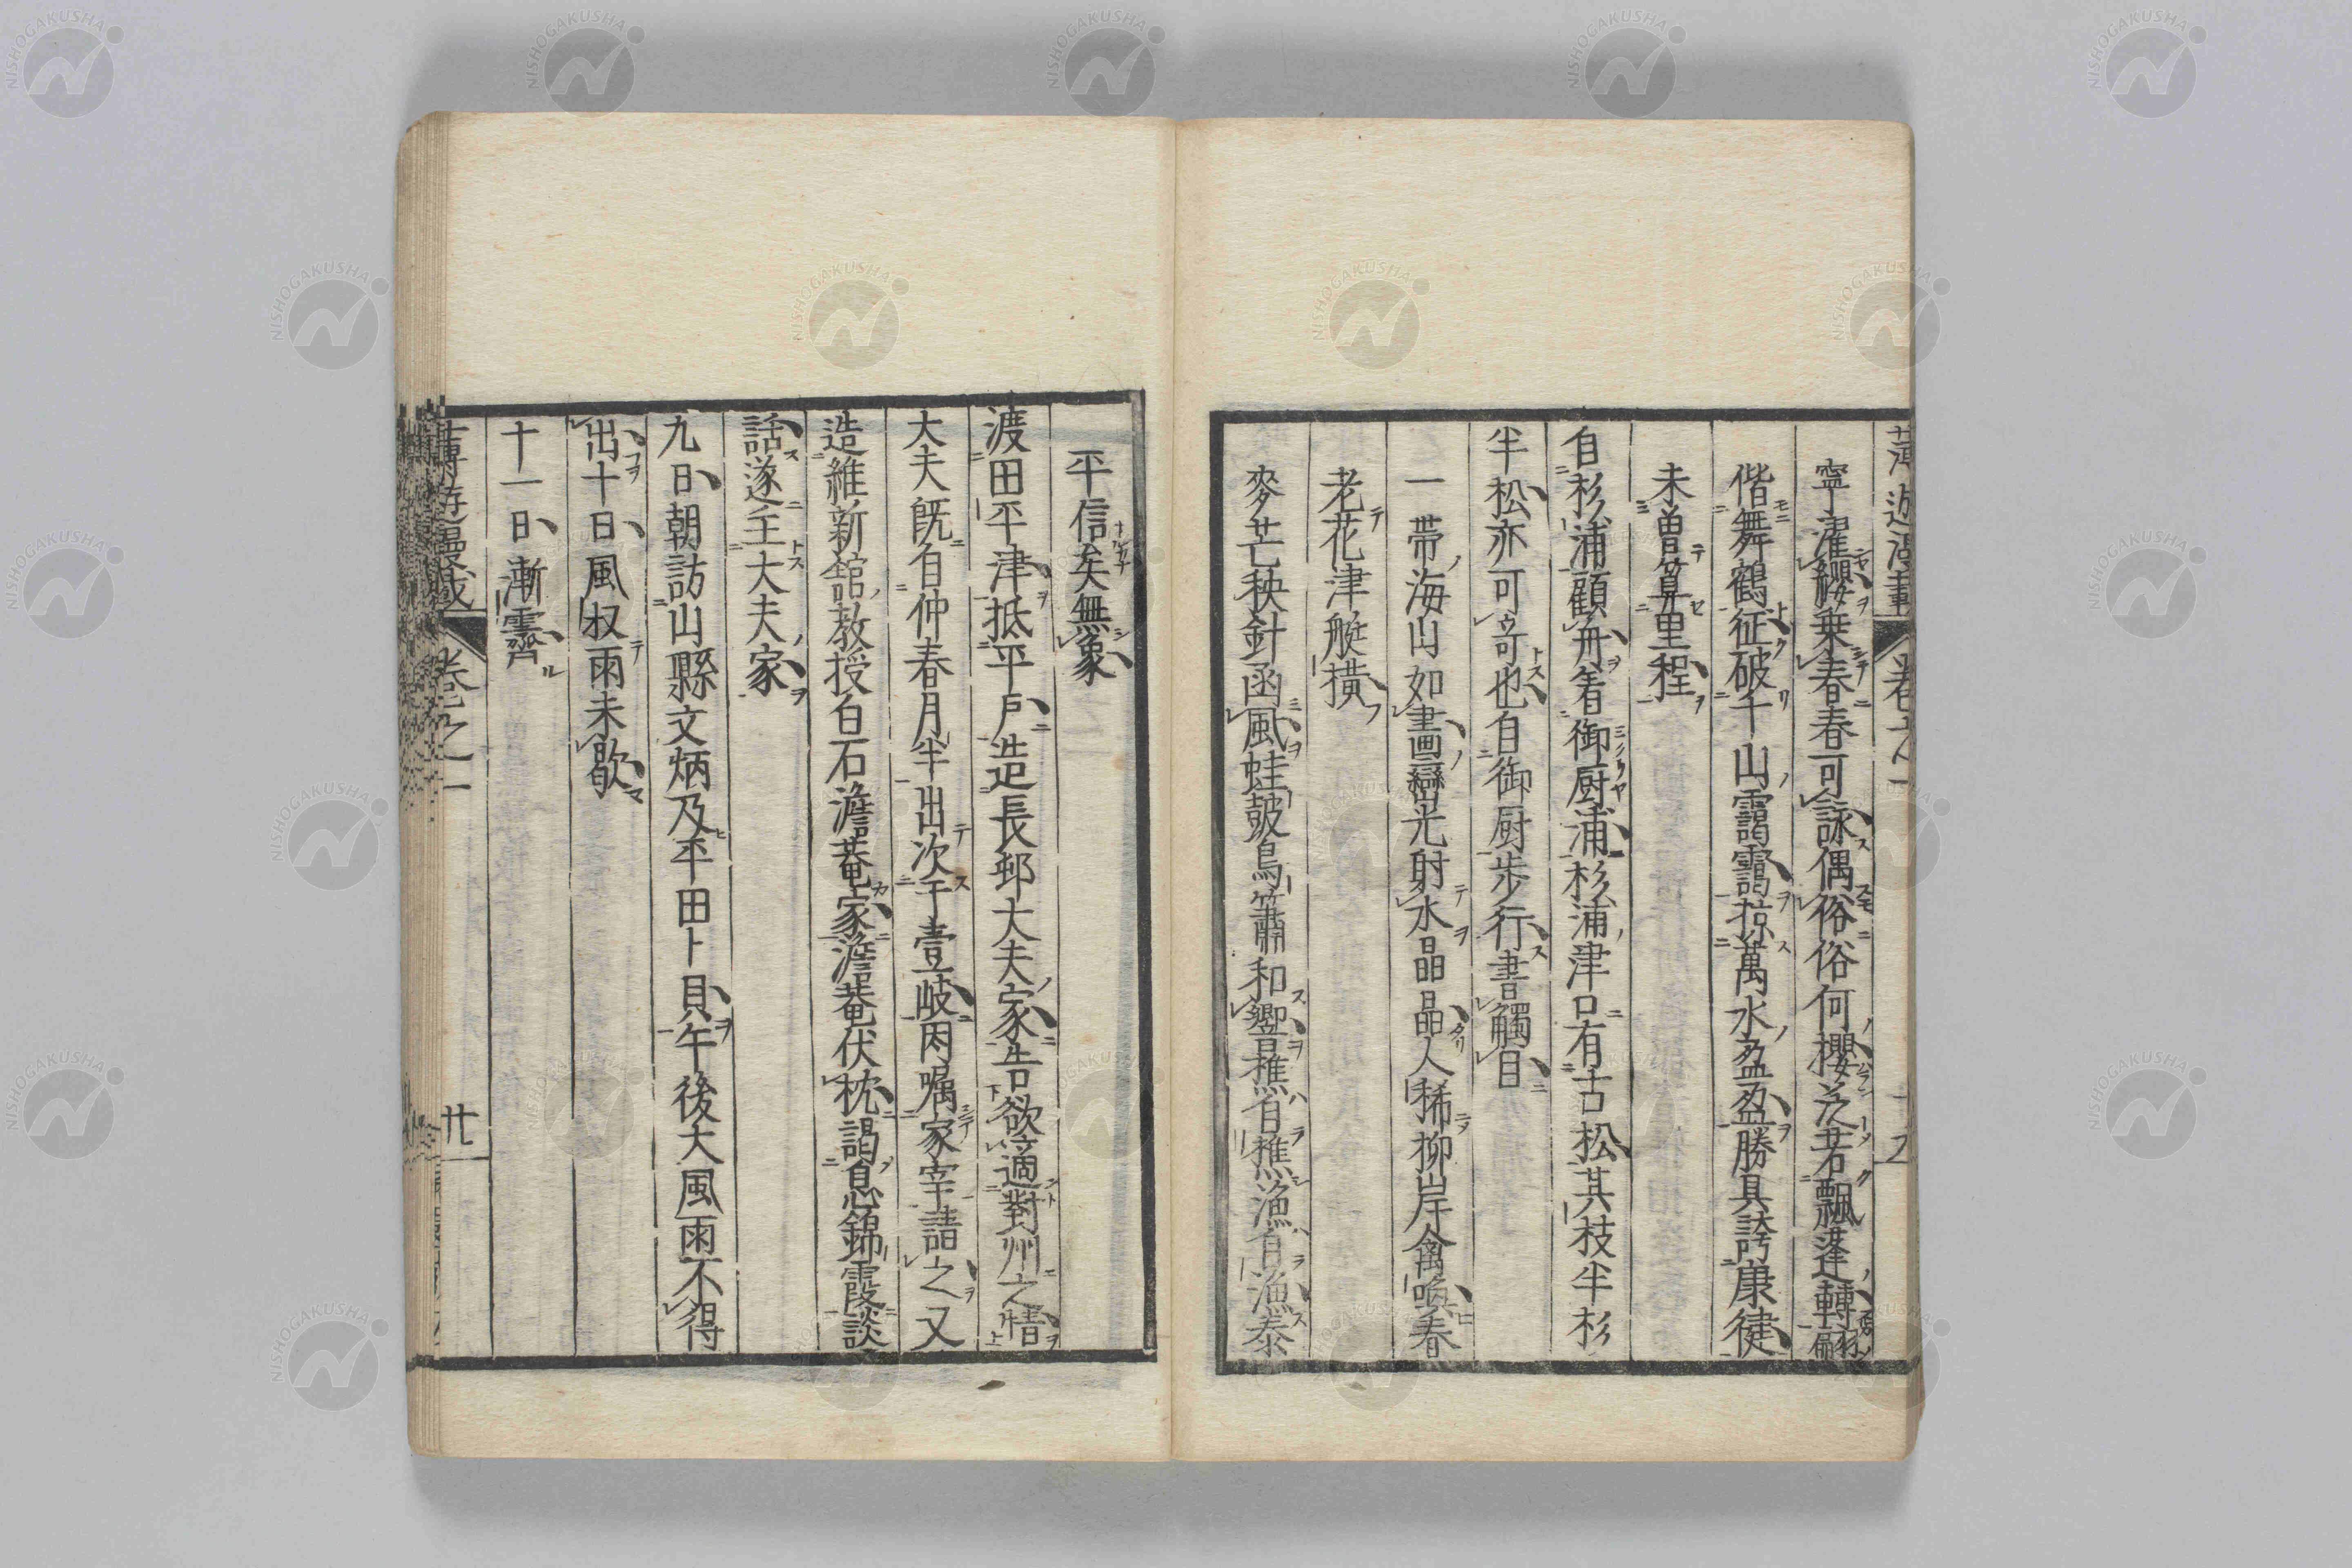 寧濯纓乗春春可詠偶俗俗何櫻茫若飄蓬轉翩
偕舞鶴征破千山靄靄掠萬水盈盈勝具誇康健
未曽算里程
自杉浦顧舟着御厨浦杉浦津口有古松其枝半杉
半松亦可奇也自御厨歩行書觸目
一帯海山如畫巒光射水晶晶人稀柳岸禽喚春
老花津艇横
麥芒秧針函風蛙皷鳥簫和響樵自樵漁自漁泰
平信矣無象
渡田平津抵平戸造長邨大夫家告欲適對州之情
大夫既自仲春月半出次于壹岐因嘱家宰請之又
造維新舘教授白石澹菴家澹菴伏枕謁息錦霞談
話遂主大夫家
九日朝訪山縣文炳及平田卜貝午後大風雨不得
出十日風収雨未歇
十一日漸霽
卷之一
廿
NISHOGAKUSHA